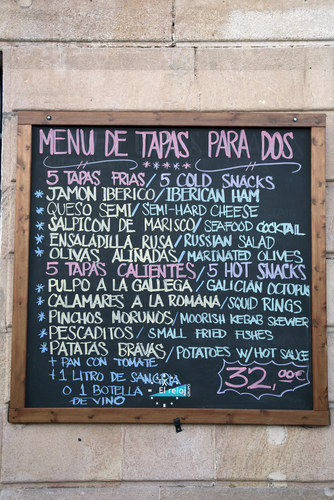 MENU DE TAPAS PARA DOS
5 TAPAS FRIAS / 5 COLD SNACKS
* JAMON IBERICO / IBERICAN HAM
* QUESO SEMI / SEMI-HARD CHEESE
* SALPICON DE MARISCO / SEAFOOD COCKTAIL
* ENSALADILLA RUSA / RUSSIAN SALAD
* OLIVAS ALINADAS / MARINATED OLIVES
5 TAPAS CALIENTES / 5 HOT SNACKS
* PULPO A LA GALLEGA / GALICIAN OCTOPUS
* CALAMARES A LA ROMANA / SQUID RINGS
* PINCHOS MORUNOS / MOORISH KEBAB SKEWER
* PESCADITOS / SMALL FRIED FISHES
* PATATAS BRAVAS / POTATOES W/HOT SAUCE
+ PAN CON TOMATE
+ 1 LITRO DE SANGRIA
O 1 BOTELLA
DE VINO
32,00€
El reloj